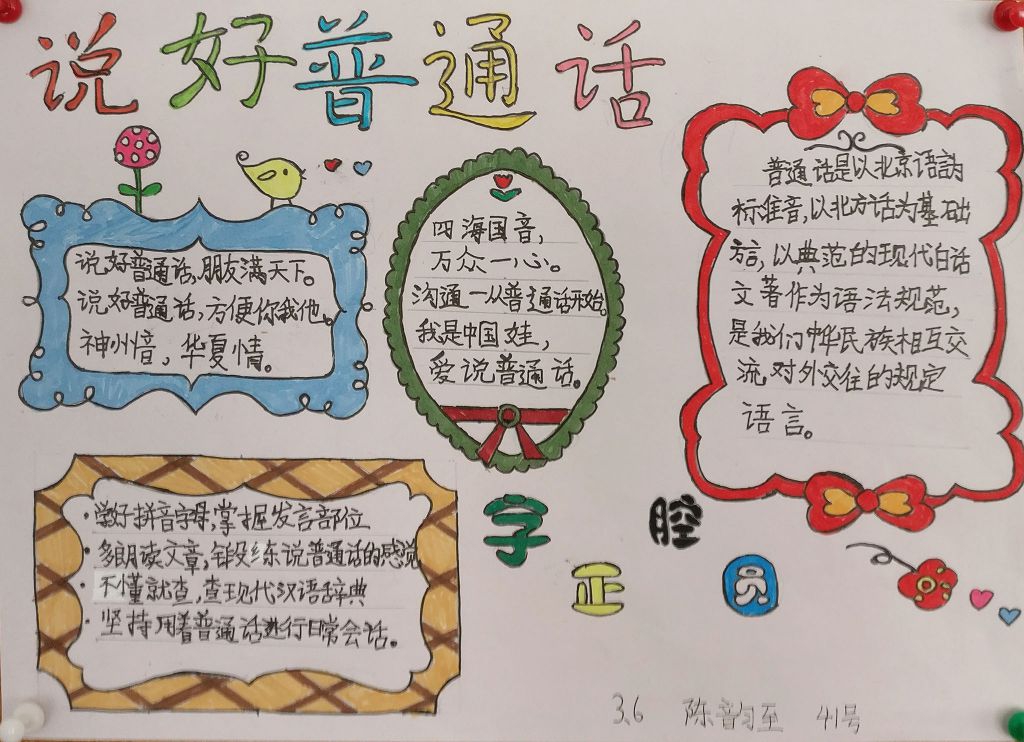 说好普通话
说好普通话，朋友满天下。
说好普通话，方便你我他。
神州音，华夏情。
四海国音，
万众一心。
沟通一从普通话开始。
我是中国娃，
爱说普通话。
普通话是以北京语音为
标准音，以北方话为基础
方言，以典范的现代白话
文著作为语法规范，
是我们中华民族相互交
流对外交往的规定
语言。
·学好拼音字母，掌握发言部位
·多朗读文章，锻练说普通话的感觉
·不懂就查，查现代汉语辞典
·坚持用着普通话进行日常会话。
字正腔员
3.6 陈韵至 41号